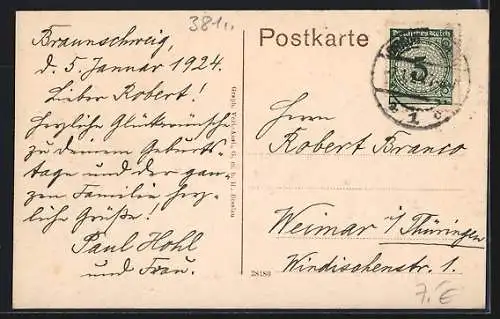 381..
Postkarte
Braunschweig,
d. 5. Januar 1924.
Lieber Robert!
Herzliche Glückwünsche
zu deinem Geburts-
tage und der gan-
zen Familie herz-
liche Grüße!
Paul Hohl
und Frau.
Graph. Verl.-Anst. G. m. b. H., Breslau
28183
Deutsches Reich
5
1
Herrn
Robert Branco
Weimar i/Thüringen
Windischenstr. 1.
7,€